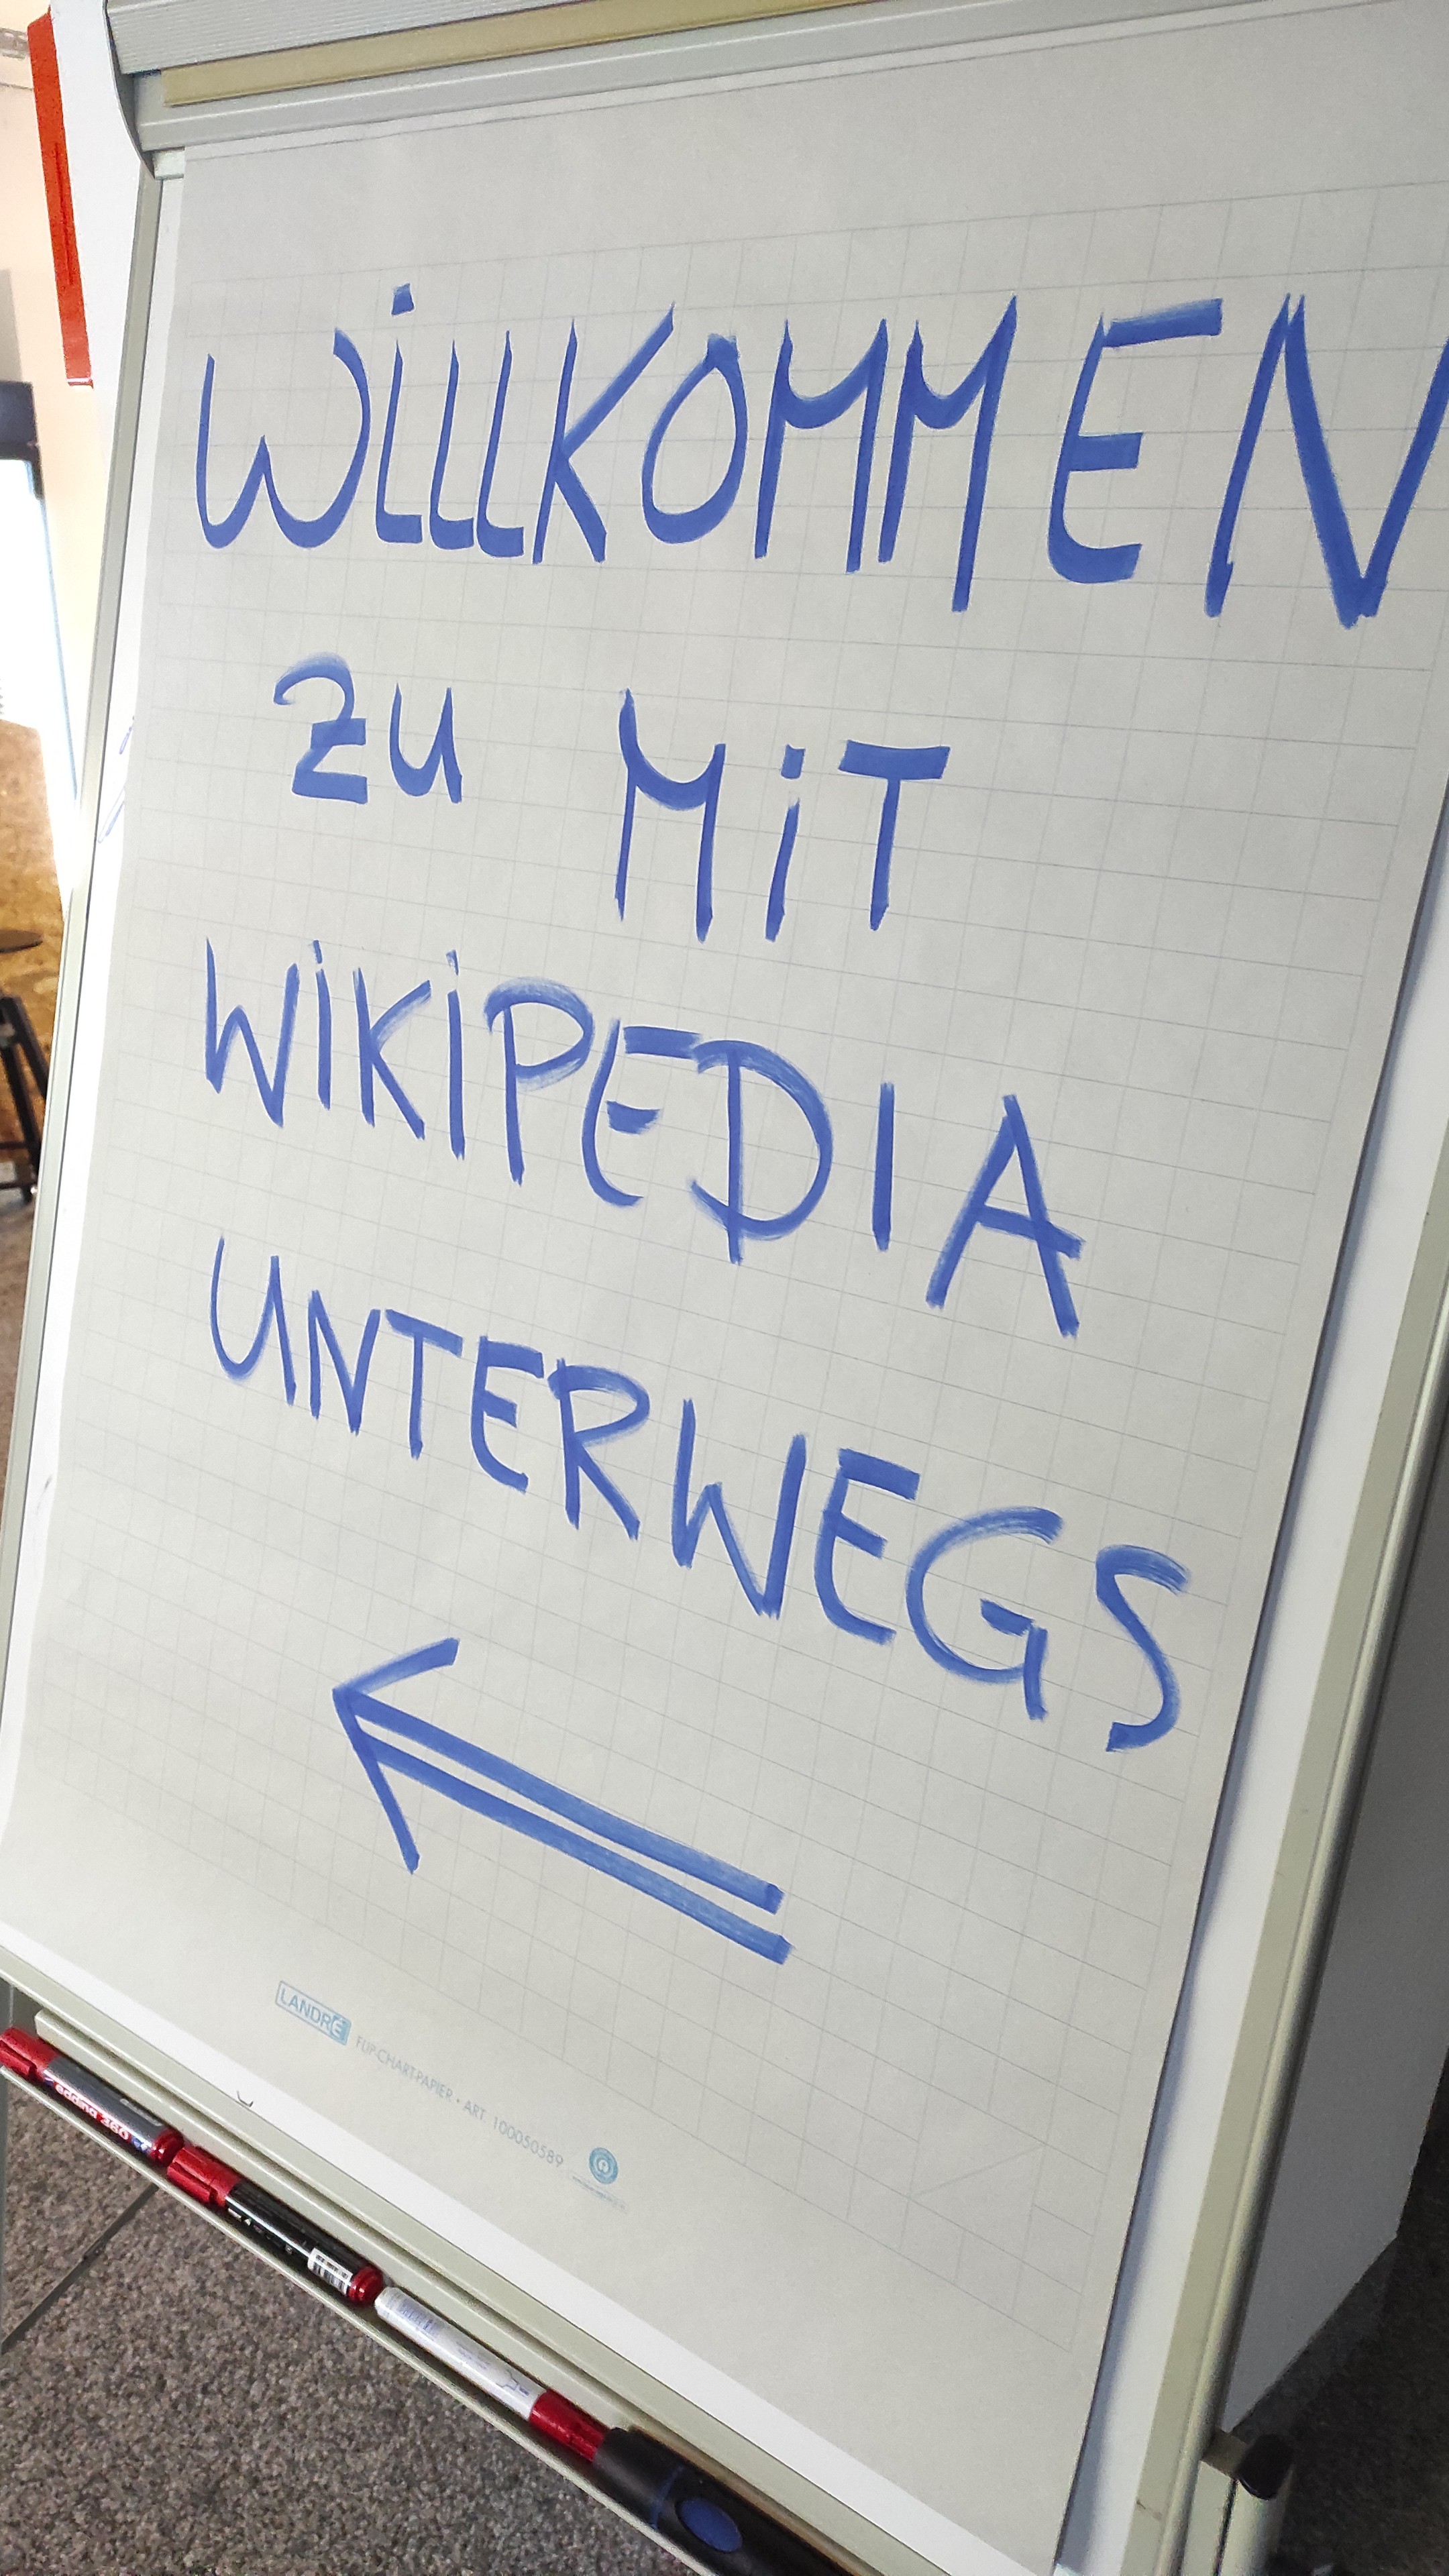 WiLLKOMMEN
ZU MiT
WiKiPEDIA
UNTERWEGS
LANDRÉ FLIP-CHART-PAPIER • ART. 100050589
edding 360